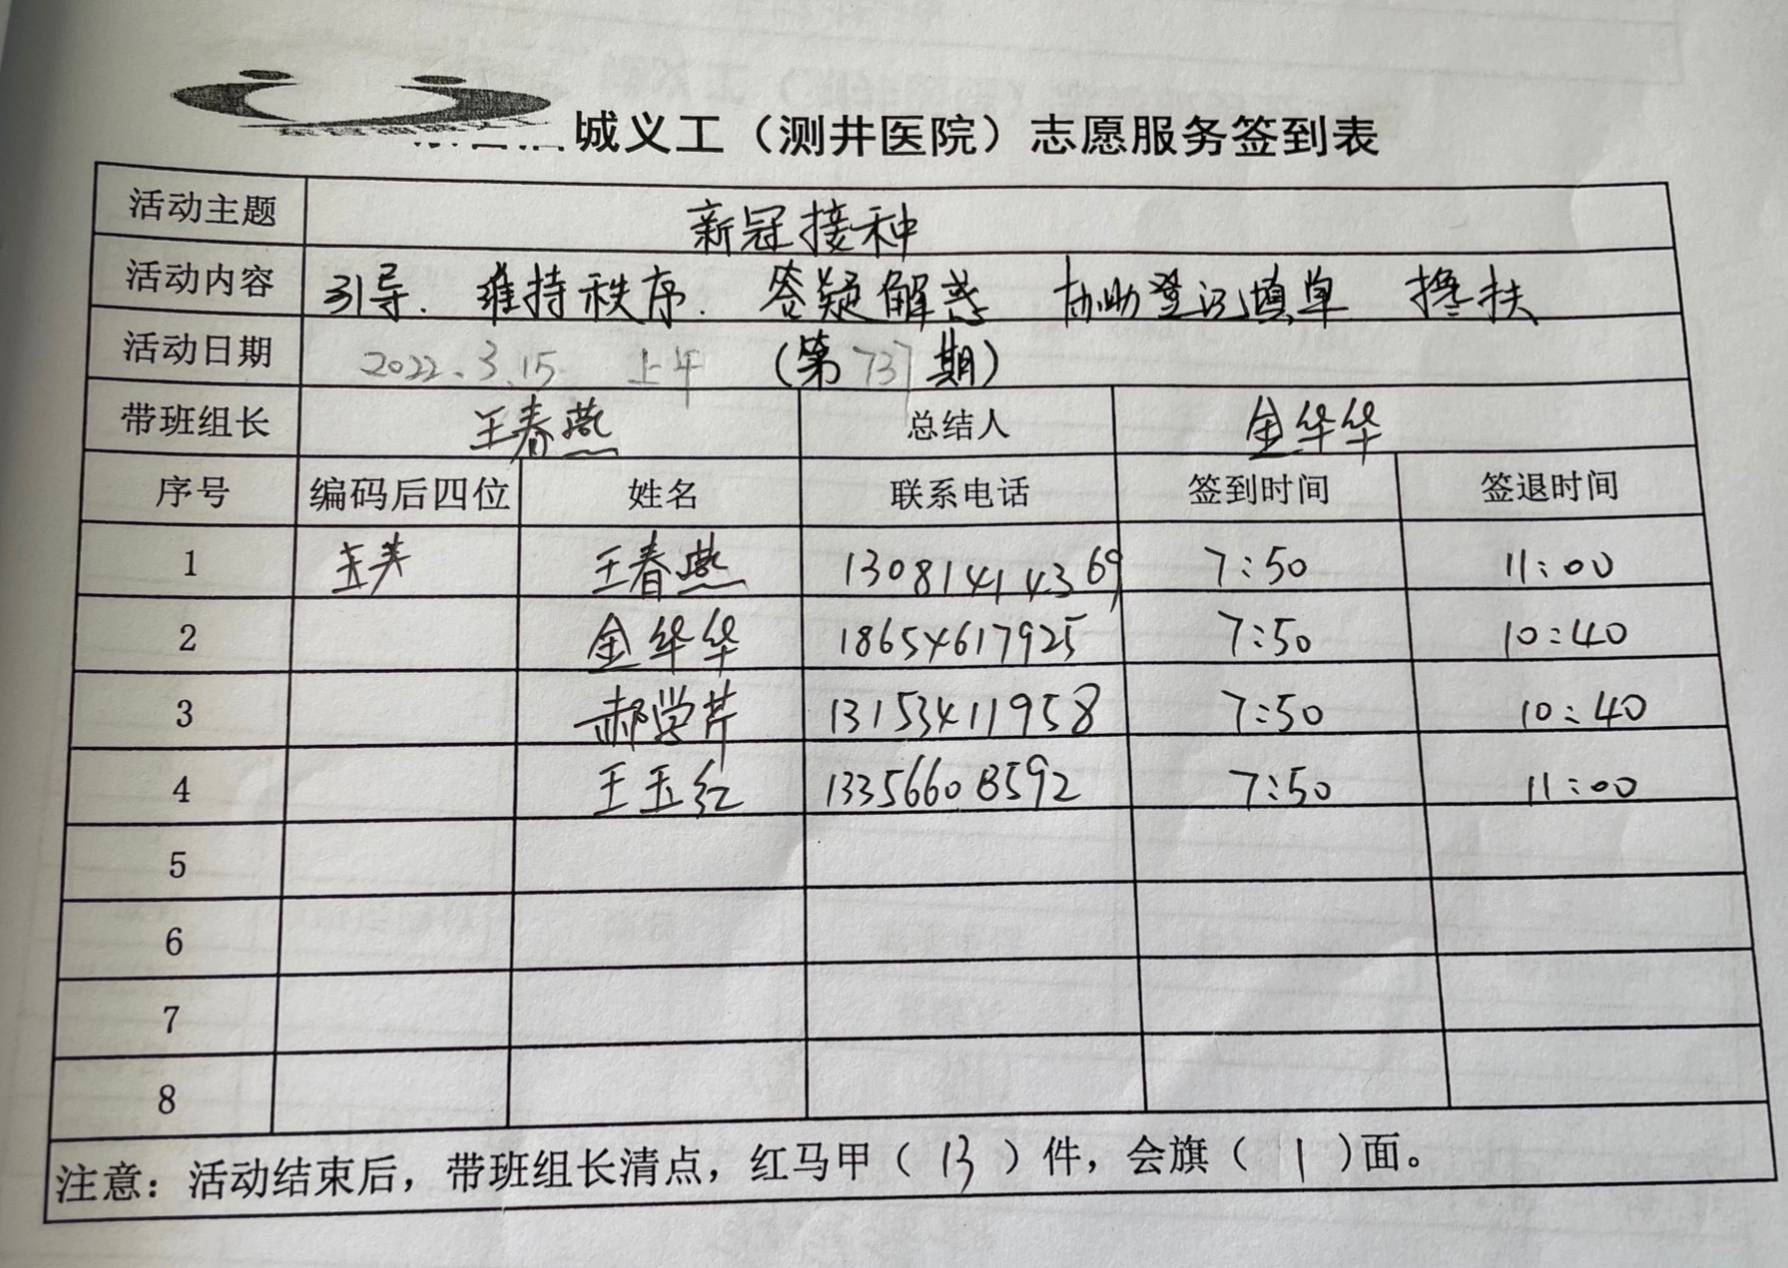 城义工（测井医院）志愿服务签到表
活动主题 新冠接种
活动内容 引导. 维持秩序. 答疑解惑 协助登记填单 搀扶
活动日期 2022.3.15 上午 (第737期)
带班组长 王春燕 总结人 金华华
序号 编码后四位 姓名 联系电话 签到时间 签退时间
1 王春燕 13081414369 7:50 11:00
2 金华华 18654617925 7:50 10:40
3 郝学芹 13153411958 7:50 10:40
4 王玉红 13356608592 7:50 11:00
5
6
7
8
注意：活动结束后，带班组长清点，红马甲（13）件，会旗（1）面。